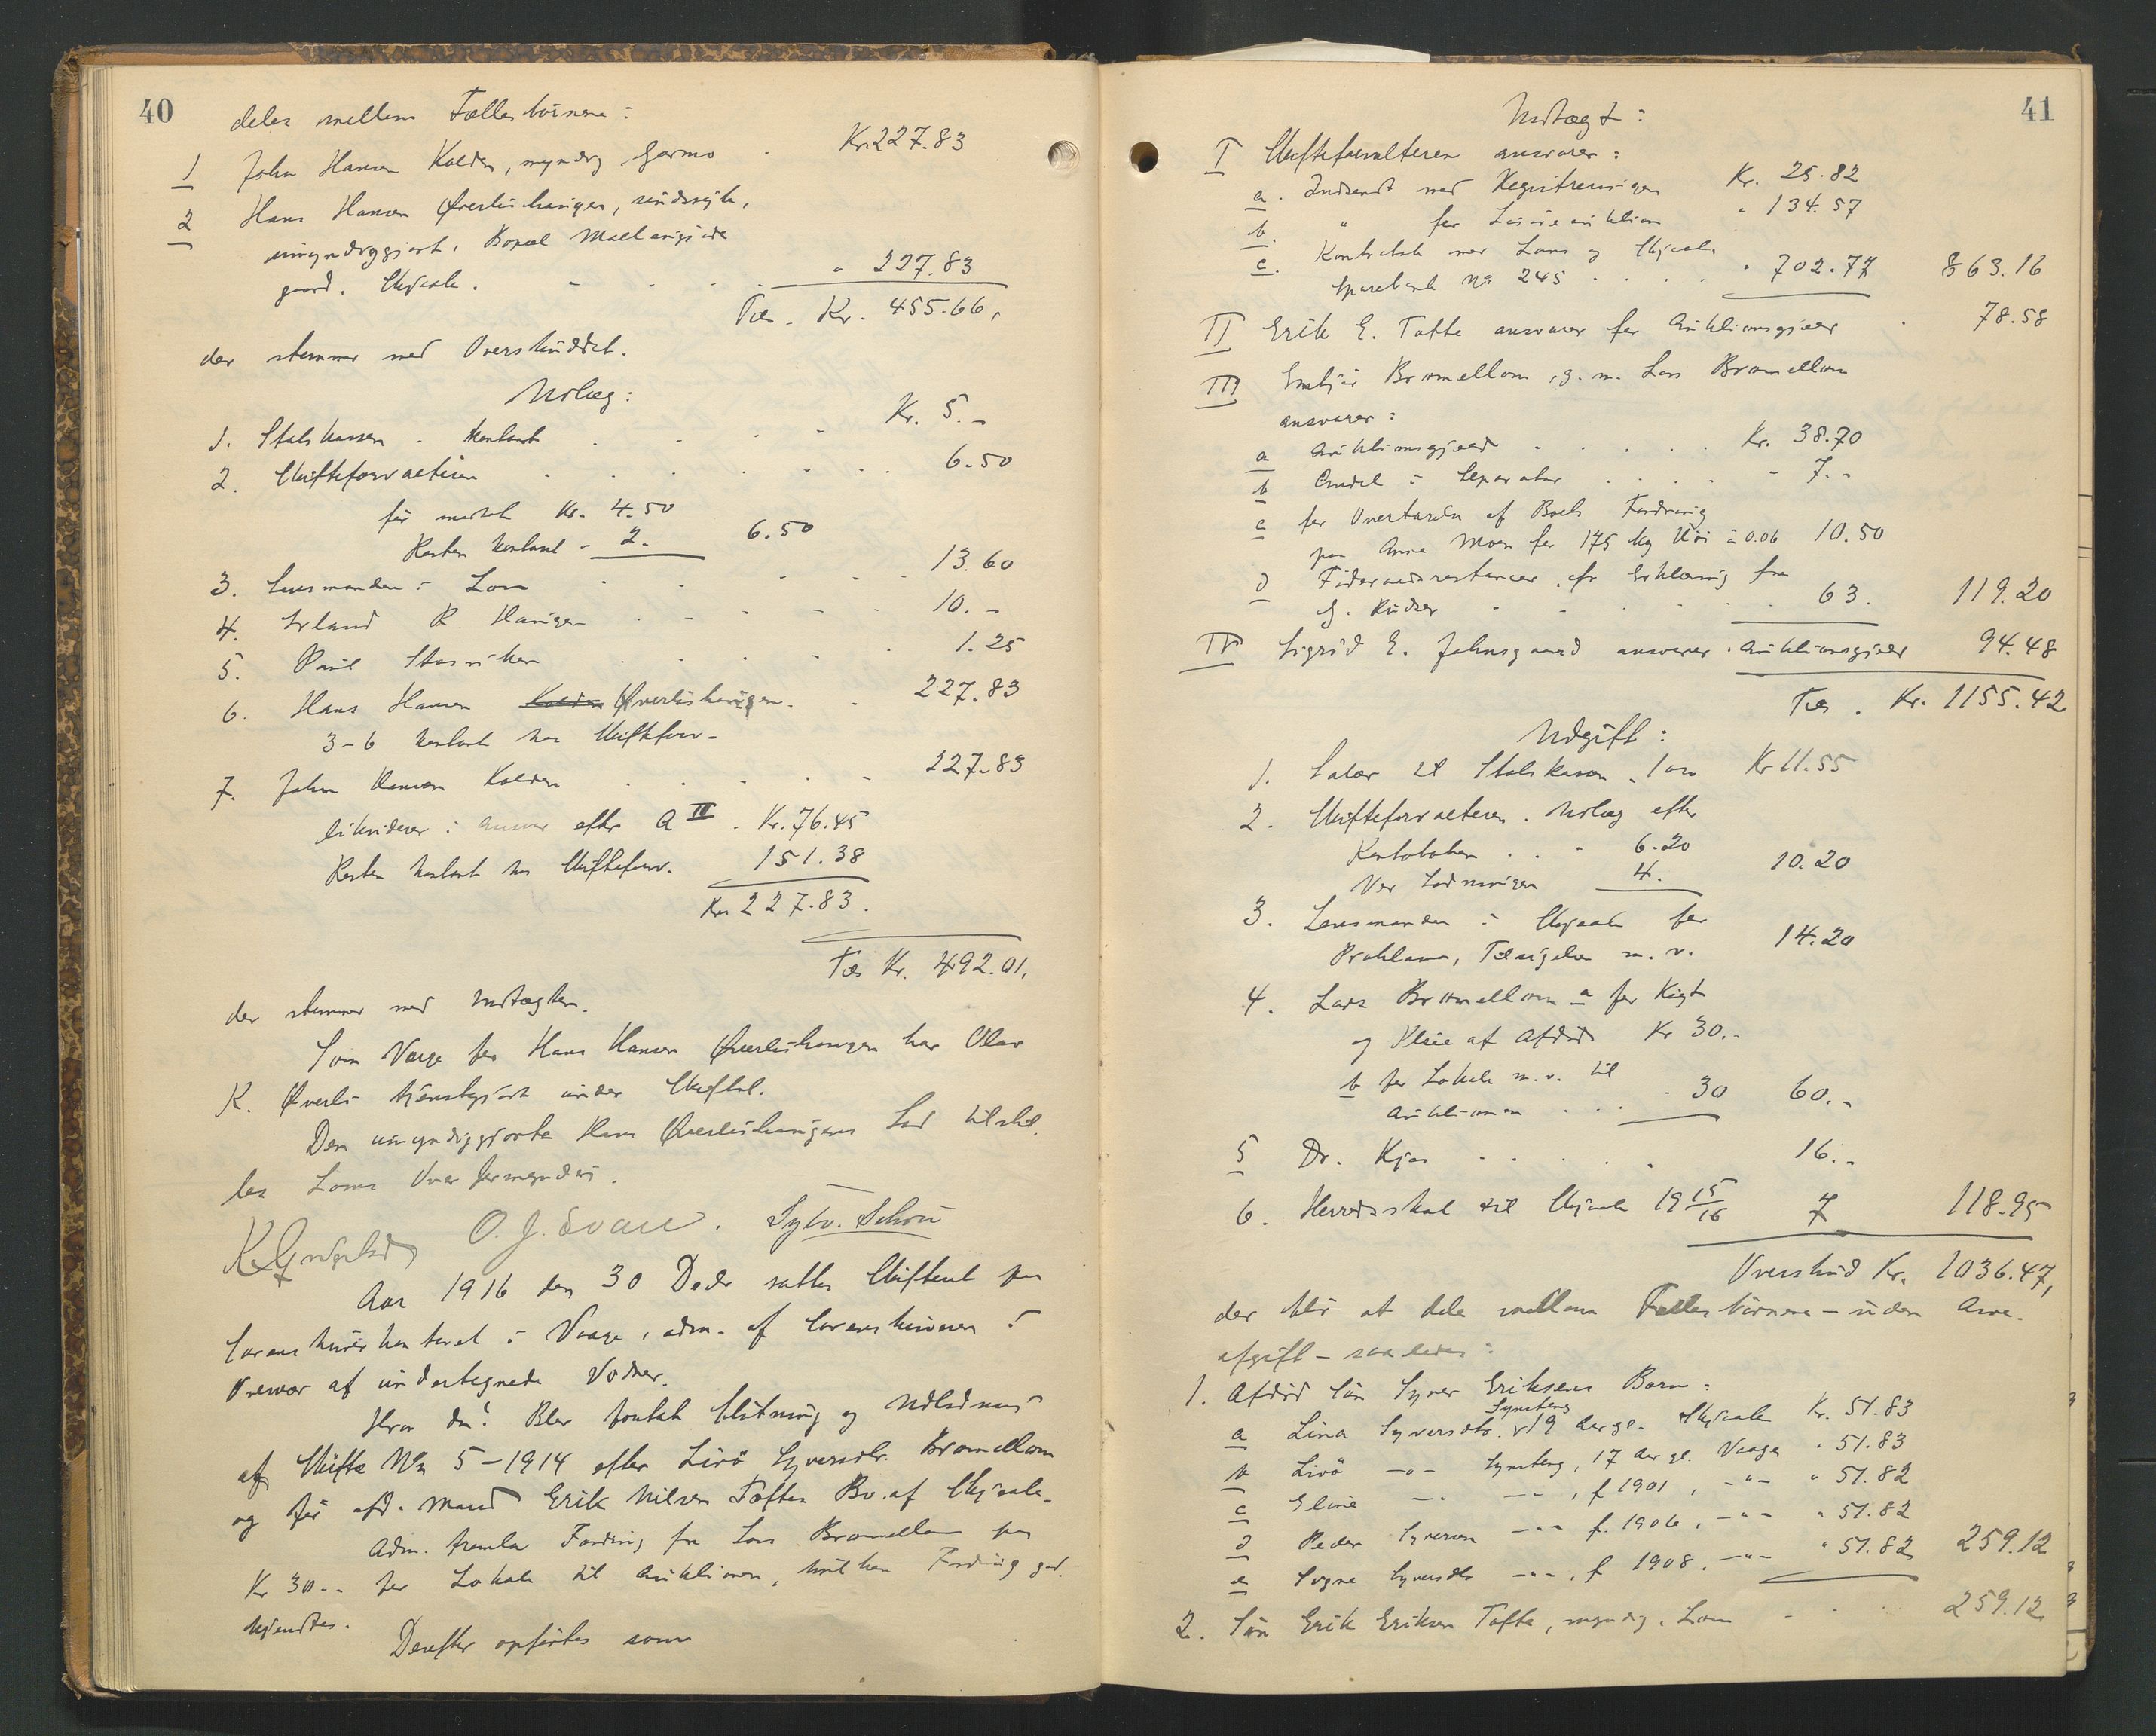 40
deles mellem Fællesbörnene:
1 John Hansen Kolden, myndig Garmo . Kr. 227.83
2 Hans Hansen Øverlihaugen, sindssyk,
umyndiggjort, Bopæl
gaard. Skjaak. - - - " 227.83
Tils. Kr. 455.66,
der stemmer med Overskuddet.
Utlæg:
1. Statskassen. kontant . . . . Kr. 5.-
2. Skifteforvalteren . . . . . 6.50
før mottat Kr. 4.50
Resten kontant - 2. 6.50
3. Lensmanden i Lom . . . . . 13.60
4. Erland R. Haugen . . . . 10.-
5. Paul Stamsiken . . . . . 1.25
6. Hans Hansen Kolden Øverlihaugen. . 227.83
3-6 kontant hos Skifteforv.
7. John Hansen Kolden . . . . . 227.83
likviderer i Ansvar efter A III . Kr. 76.45
Resten kontant hos Skifteforv. 151.38
Kr. 227.83.
Tils Kr. 492.01.
der stemmer med Indtægten.
Som Værge for Hans Hansen Øverlihaugen har Olav
K. Øverli tjenstgjort under Skiftet.
Den umyndiggjorte Hans Øverlihaugens Lod tilstil-
les Loms Overformynderi.
O. J. Svare. Sylv. Schou
Aar 1916 den 30 Decbr sattes Skifteret paa
Sorenskriverkontoret i Vaage, adm. af Sorenskriveren i
Overvær af undertegnede Vidner.
Hvor da: Blev foretat Slutning og Utlodning
af Skifte No 5-1914 efter Livö Syversdtr. Bromellom
og før afd. Mand Erik Nilsen Toften Bo. af Skjaak.
Adm. fremla Fordring fra Lars Bromellom paa
Kr 30.- for Lokale til Auktionen, hvilken Fordring god-
kjendtes.
Derefter opførtes som
41
Indtægt:
I Skifteforvalteren ansvarer:
a. Indsendt med Registreringen Kr. 25.82
b. " for Løsöreauktion " 134.57
c. Kontrabok med Lom og Skjaaks
Sparebank No 245 . . . . " 702.77 863.16
II Erik E. Tofte ansvarer for Auktionsgjæld . 78.58
III Bromellom, g. m. Lars Bromellom
ansvarer:
a Auktionsgjæld . . . . . Kr. 38.70
b Andel i Separator . . . . - 7.-
c for Overtagelse af Boets Fordring
paa Anne Moen for 175 kg Höi à 0.06 10.50
d Föderaadsrestancer, cfr Erklæring fra
G. Rudser - . . . . . 63. 119.20
IV Sigrid E. Jahnsgaard ansvarer. Auktionsgjæld 94.48
Tils . Kr. 1155.42
Udgift:
1. Salær til Statskassen. 1 o/o Kr 11.55
2. Skifteforvalteren. Utlæg efter
Kontoboken . . - 6.20
Ved Lodningen 4. 10.20
3. Lensmanden i Skjaak for
Proklama, Tilsigelse m. v. 14.20
4. Lars Bromellom a for Rögt
og Pleie af Afdöde Kr 30.-
b for Lokale m. v. til
Auktionen . . . - 30 60.-
5 Dr. Kjos . . . . . 16.-
6. Herredsskat til Skjaak 19 15/16 7 118.95
Overskud Kr. 1036.47,
der blir at dele mellem Fællesbörnene - uden Arve-
afgift - saaledes:
1. Afdöd Sön Syver Eriksens Barn:
a Lina Syversdtr. Synsteng, 19 Aar gl. Skjaak Kr. 51.83
b Livö -"- Synsteng, 17 Aar gl. Vaage " 51.83
c Eline -"- -"-, f 1901, -"- " 51.82
d Peder Syversen -"- f. 1906, -"- " 51.82
e Signe Syversdtr -"-, f 1908, -"- " 51.82 259.12
2. Sön Erik Eriksen Tofte, myndig. Lom - - - 259.12